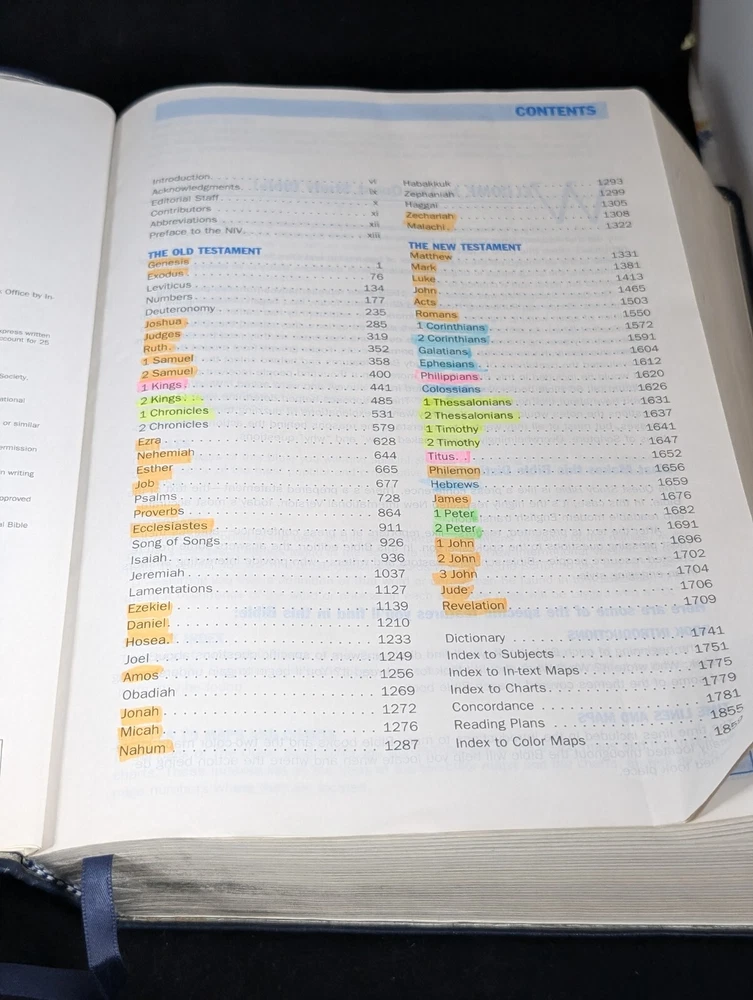 CONTENTS
Introduction vi
Acknowledgments ix
Editorial Staff x
Contributors xi
Abbreviations xii
Preface to the NIV xiii
THE OLD TESTAMENT
Genesis 1
Exodus 76
Leviticus 134
Numbers 177
Deuteronomy 235
Joshua 285
Judges 319
Ruth 352
1 Samuel 358
2 Samuel 400
1 Kings 441
2 Kings 485
1 Chronicles 531
2 Chronicles 579
Ezra 628
Nehemiah 644
Esther 665
Job 677
Psalms 728
Proverbs 864
Ecclesiastes 911
Song of Songs 926
Isaiah 936
Jeremiah 1037
Lamentations 1127
Ezekiel 1139
Daniel 1210
Hosea 1233
Joel 1249
Amos 1256
Obadiah 1269
Jonah 1272
Micah 1276
Nahum 1287
Habakkuk 1293
Zephaniah 1299
Haggai 1305
Zechariah 1308
Malachi 1322
THE NEW TESTAMENT
Matthew 1331
Mark 1381
Luke 1413
John 1465
Acts 1503
Romans 1550
1 Corinthians 1572
2 Corinthians 1591
Galatians 1604
Ephesians 1612
Philippians 1620
Colossians 1626
1 Thessalonians 1631
2 Thessalonians 1637
1 Timothy 1641
2 Timothy 1647
Titus 1652
Philemon 1656
Hebrews 1659
James 1676
1 Peter 1682
2 Peter 1691
1 John 1696
2 John 1702
3 John 1704
Jude 1706
Revelation 1709
Dictionary 1741
Index to Subjects 1751
Index to In-text Maps 1775
Index to Charts 1779
Concordance 1781
Reading Plans 1855
Index to Color Maps
Office by In
express written
account for 25
Society.
or similar
in writing
approved
Bible